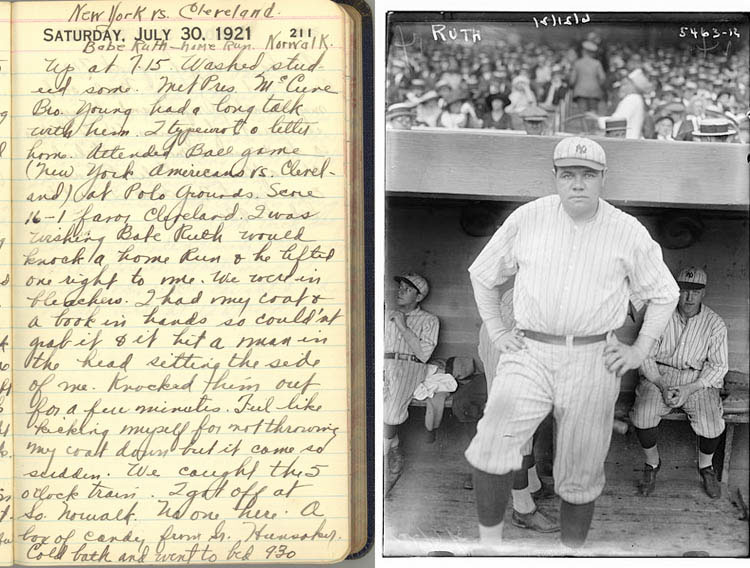 New York vs. Cleveland.
SATURDAY, JULY 30, 1921
211
Babe Ruth - home Run. Norwalk.
Up at 7.15. Washed, stud-
ied some. Met Pres. McCune
Bro. Young had a long talk
with him. I typewrote letter
home. Attended Ball game
(New York Americans vs. Clevel-
and) at Polo Grounds. Score
16-1 favor Cleveland. I was
wishing Babe Ruth would
knock a home Run & he lifted
one right to me. We were in
bleachers. I had my coat &
a book in hands so couldn't
grab it & it hit a man in
the head sitting the side
of me. Knocked them out
for a few minutes. Feel like
kicking myself for not throwing
my coat down but it came so
sudden. We caught the 5
o'clock train. I got off at
So. Norwalk. No one here. A
box of candy from Sr. Hunsaker.
Cold bath and went to bed 930
RUTH
5463-12
NY